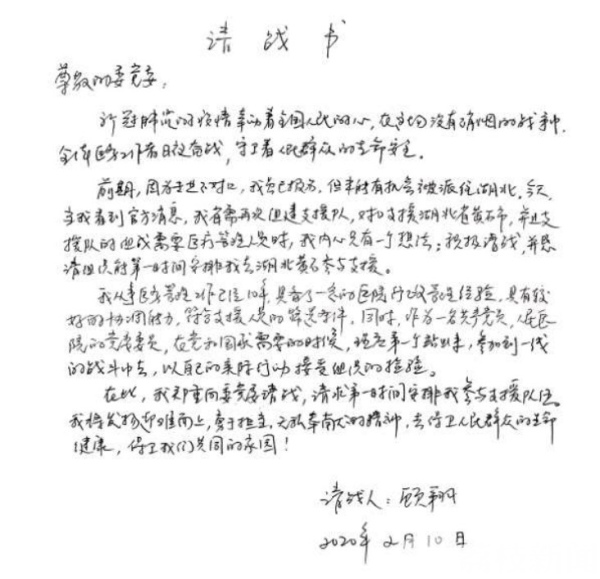 请战书
尊敬的委党委：
新冠肺炎的疫情牵动着全国人民的心，在这场没有硝烟的战争中，
全体医务工作者日夜奋战，守卫着人民群众的生命安全。
前期，因为专业不对口，我虽已报名，但未能有机会被派往湖北。今天，
当我看到官方消息，我省需再次组建支援队，对口支援湖北省黄石市，并且支
援队的组成需要医疗管理人员时，我内心只有一个想法：积极请战，并恳
请组织能第一时间安排我去湖北黄石参与支援。
我从事医疗管理工作已经10年，具备了一定的医院行政管理经验，具有较
好的协调能力，符合支援人员的筛选条件，同时，作为一名共产党员，人民医
院的党委委员，在党和国家需要的时候，理应第一个站出来，参加到一线
的战斗中去，以自己的实际行动接受组织的检验。
在此，我郑重向委党委请战，请求第一时间安排我参与支援队伍，
我将发扬迎难而上，勇于担当，无私奉献的精神，去保卫人民群众的生命
健康，保卫我们共同的家园！
请战人：顾翔
2020年2月10日